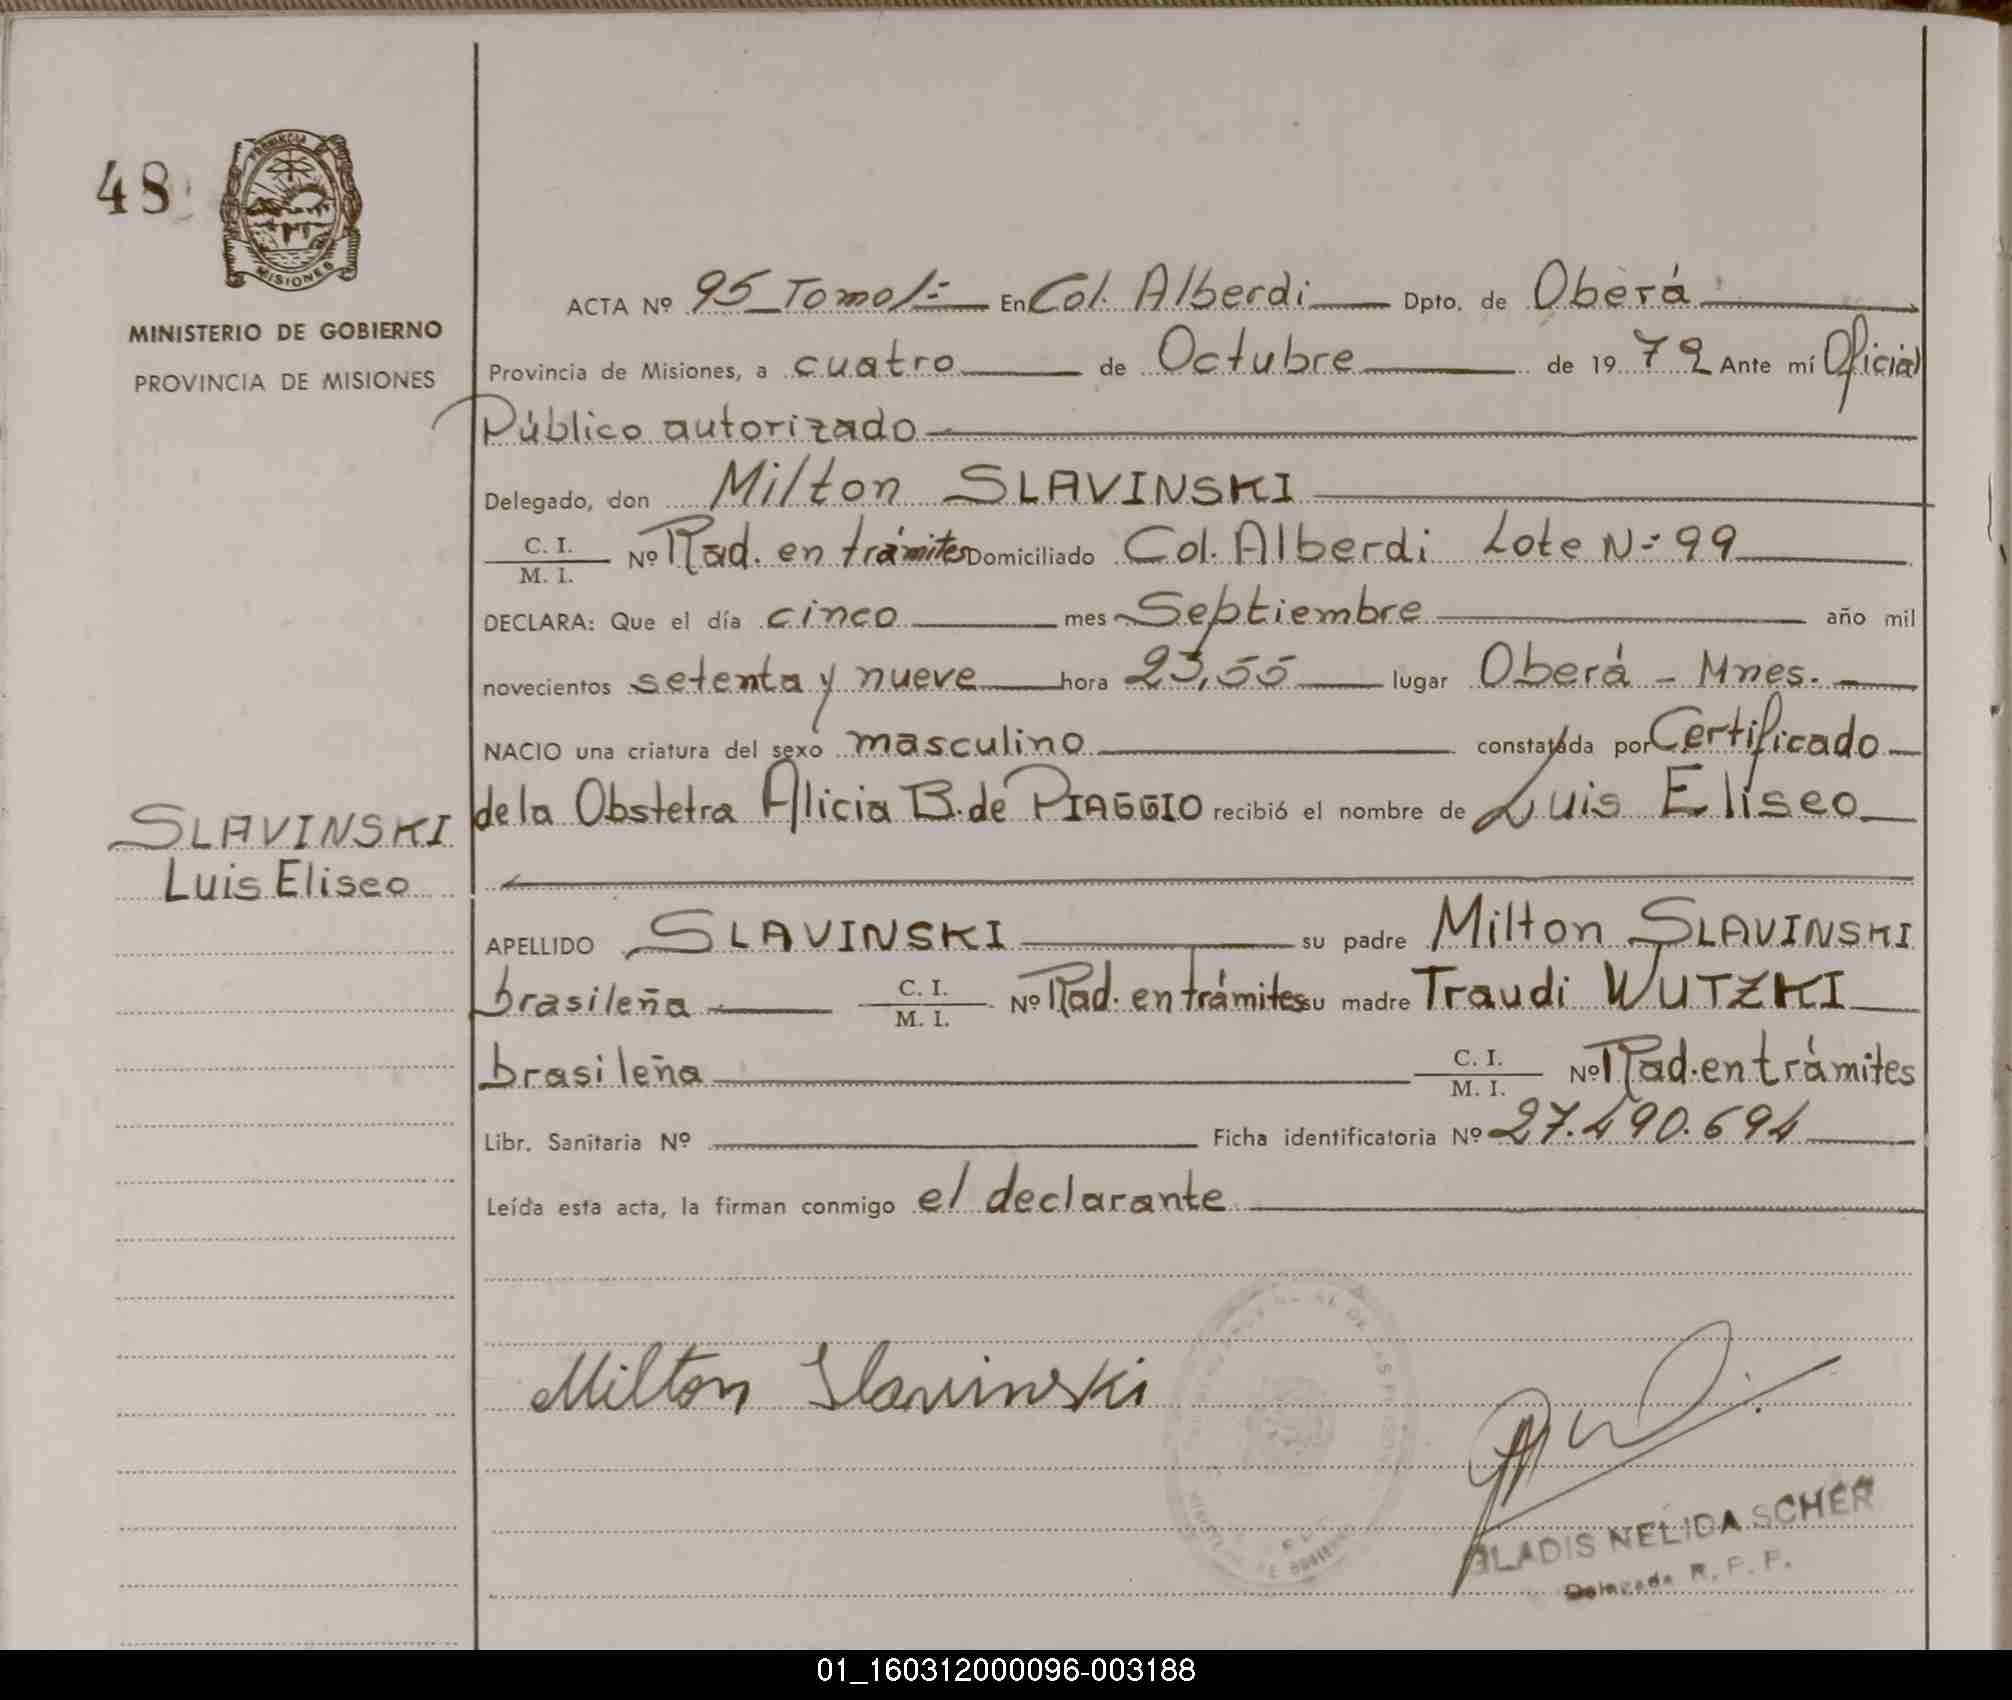 48
PROVINCIA
MISIONES
MINISTERIO DE GOBIERNO
PROVINCIA DE MISIONES
SLAVINSKI
Luis Eliseo
ACTA Nº 95 Tomo I:- En Col. Alberdi Dpto. de Oberá
Provincia de Misiones, a cuatro de Octubre de 1979 Ante mí Oficial
Público autorizado
Delegado, don Milton SLAVINSKI
C. I. / M. I. Nº Rad. en trámites Domiciliado Col. Alberdi Lote Nº 99
DECLARA: Que el día cinco mes Septiembre año mil
novecientos setenta y nueve hora 23,55 lugar Oberá - Mnes.
NACIO una criatura del sexo masculino constatada por Certificado
de la Obstetra Alicia B. de PIAGGIO recibió el nombre de Luis Eliseo
APELLIDO SLAVINSKI su padre Milton SLAVINSKI
brasileña C. I. / M. I. Nº Rad. en trámites su madre Traudi WUTZKI
brasileña C. I. / M. I. Nº Rad. en trámites
Libr. Sanitaria Nº Ficha identificatoria Nº 27.490.694
Leída esta acta, la firman conmigo el declarante
Milton Slavinski
GLADIS NELIDA SCHER
Delegada R. P. P.
01_160312000096-003188